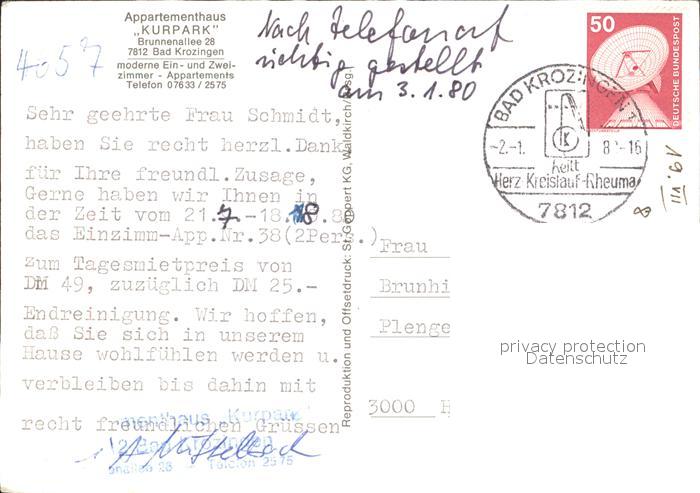 Appartementhaus
„KURPARK"
Brunnenallee 28
7812 Bad Krozingen
moderne Ein- und Zwei-
zimmer - Appartements
Telefon 07633 / 2575
4057
Nach Telefonat
richtig gestellt
am 3.1.80
50
DEUTSCHE BUNDESPOST
BAD KROZINGEN 1
-2.-1. 8 -16
heilt
Herz-Kreislauf-Rheuma
7812
19. VII
8
Sehr geehrte Frau Schmidt,
haben Sie recht herzl.Dank
für Ihre freundl.Zusage,
Gerne haben wir Ihnen in
der Zeit vom 21.7-18.8.8
das Einzimm-App.Nr.38(2Pers.)
zum Tagesmietpreis von
DM 49, zuzüglich DM 25.-
Endreinigung. Wir hoffen,
daß Sie sich in unserem
Hause wohlfühlen werden u.
verbleiben bis dahin mit
recht freundlichen Grüssen
menthaus „Kurpark"
Bad Krozingen
nallee 28 - Telefon 2575
Reproduktion und Offsetdruck: St. Goppert KG, Waldkirch/
Frau
Brunhi
Plenge
3000 H
privacy protection
Datenschutz